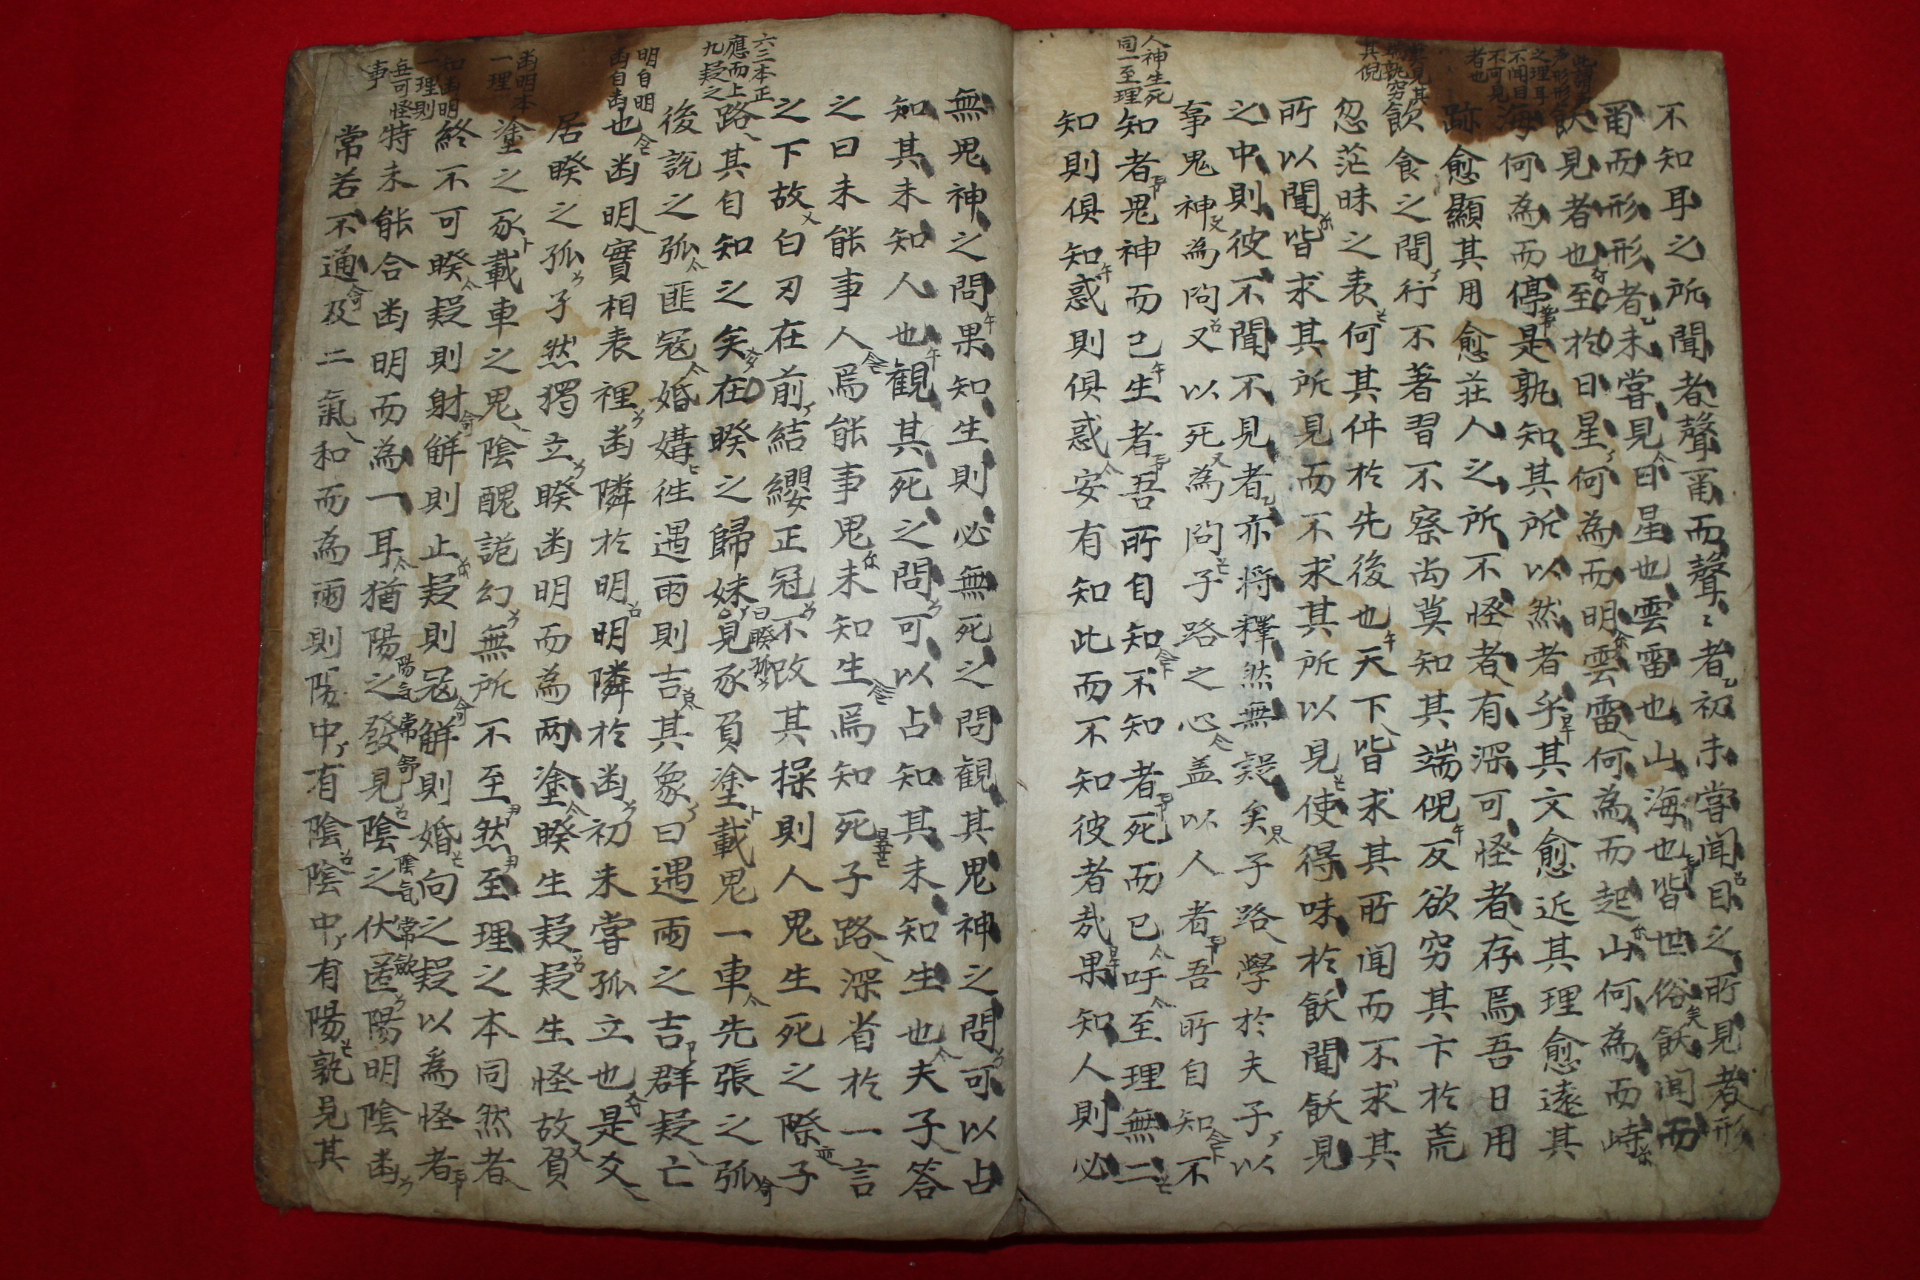 人神生死
同一至理
不知耳之所聞者聲甭而聲〻者初未嘗聞目之所見者形
甭而形形者未嘗見日星也雲雷也山海也皆世俗飫聞而
飫見者也至於日星何為而明雲雷何為而起山何為而峙
海何為而停是孰知其所以然者乎其文愈近其理愈遠其
跡愈顯其用愈莊人之所不怪者有深可怪者存焉吾日用
飲食之間行不著習不察尚莫知其端倪反欲穷其卞於荒
忽茫昧之表何其件於先後也天下皆求其所聞而不求其
所以聞皆求其所見而不求其所以見使得味於飫聞飫見
之中則彼不聞不見者亦将釋然無誤矣子路學於夫子以
事鬼神為问又以死為问子路之心盖以人者吾所自知不
知者鬼神而已生者吾所自知不知者死而已吁至理無二
知則俱知惑則俱惑安有知此而不知彼者㢤果知人則必
無鬼神之問果知生則必無死之問観其鬼神之問可以占
知其未知人也観其死之問可以占知其未知生也夫子答
之曰未能事人焉能事鬼未知生焉知死子路深省於一言
之下故白刃在前結纓正冠不改其操則人鬼生死之際子
路其自知之矣在睽之歸妹曰睽孤見豕負塗載鬼一車先張之弧
後説之弧匪冦婚媾徃遇雨則吉其象曰遇雨之吉群疑亡
也幽明實相表裡幽隣於明明隣於幽初未嘗孤立也是爻
居睽之孤孑然獨立睽幽明而為两塗睽生疑疑生怪故負
塗之豕載車之鬼陰醜詭幻無所不至然至理之本同然者
終不可睽疑則射觧則止疑則冦觧則婚向之疑以爲怪者
特未能合幽明而為一耳猶陽之發見陰之伏匿陽明陰幽
常若不通及二氣和而為雨則陽中有陰陰中有陽孰見其
陽气常舒
陰气常歛
六三本正
應而上
九疑之
明自明
幽自幽
幽明本
一理
知幽明
一理則
無可怪
事